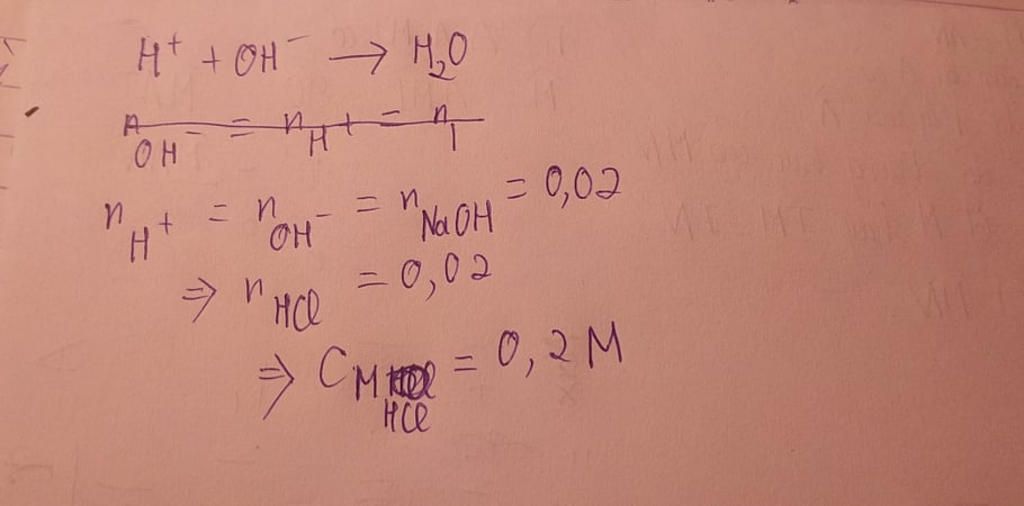 H⁺ + OH⁻ → H₂O
n_OH⁻ = n_H⁺ = n_1
n_H⁺ = n_OH⁻ = n_NaOH = 0,02
⇒ n_HCl = 0,02
⇒ C_M HCl = 0,2 M